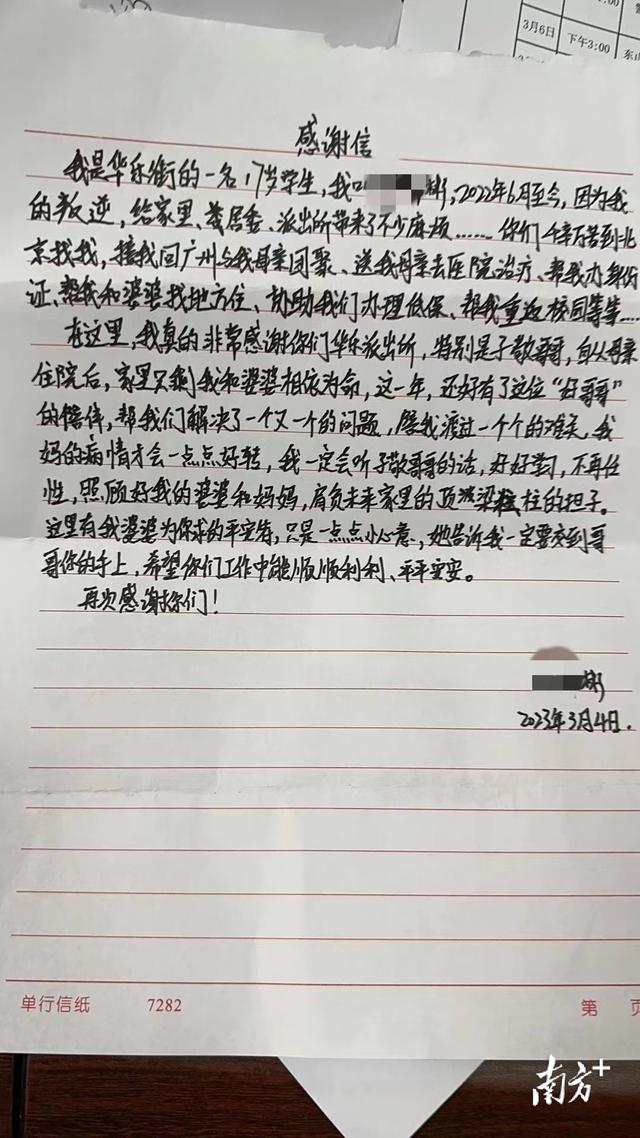 3月6日 下午3:00 东山
感谢信
我是华乐街的一名17岁学生，我叫彬，2022年6月至今，因为我
的叛逆，给家里、居委、派出所带来了不少麻烦……你们千辛万苦到北
京找我，接我回广州与我母亲团聚、送我母亲去医院治疗、帮我办身份
证、帮我和婆婆找地方住、协助我们办理低保、帮我重返校园等等…
在这里，我真的非常感谢你们华乐派出所，特别是子敬哥哥，自从母亲
住院后，家里只剩我和婆婆相依为命，这一年，还好有了这位“好哥哥”
的陪伴，帮我们解决了一个又一个的问题，陪我渡过一个个的难关，我
妈的病情才会一点点好转，我一定会听子敬哥哥的话，好好学习，不再任
性，照顾好我的婆婆和妈妈，肩负未来家里的顶梁柱的担子。
这里有我婆婆为你求的平安符，只是一点点小心意，她告诉我一定要交到哥
哥你的手上，希望你们工作中能顺顺利利、平平安安。
再次感谢你们！
彬
2023年3月4日.
单行信纸 7282 第 页
南方+